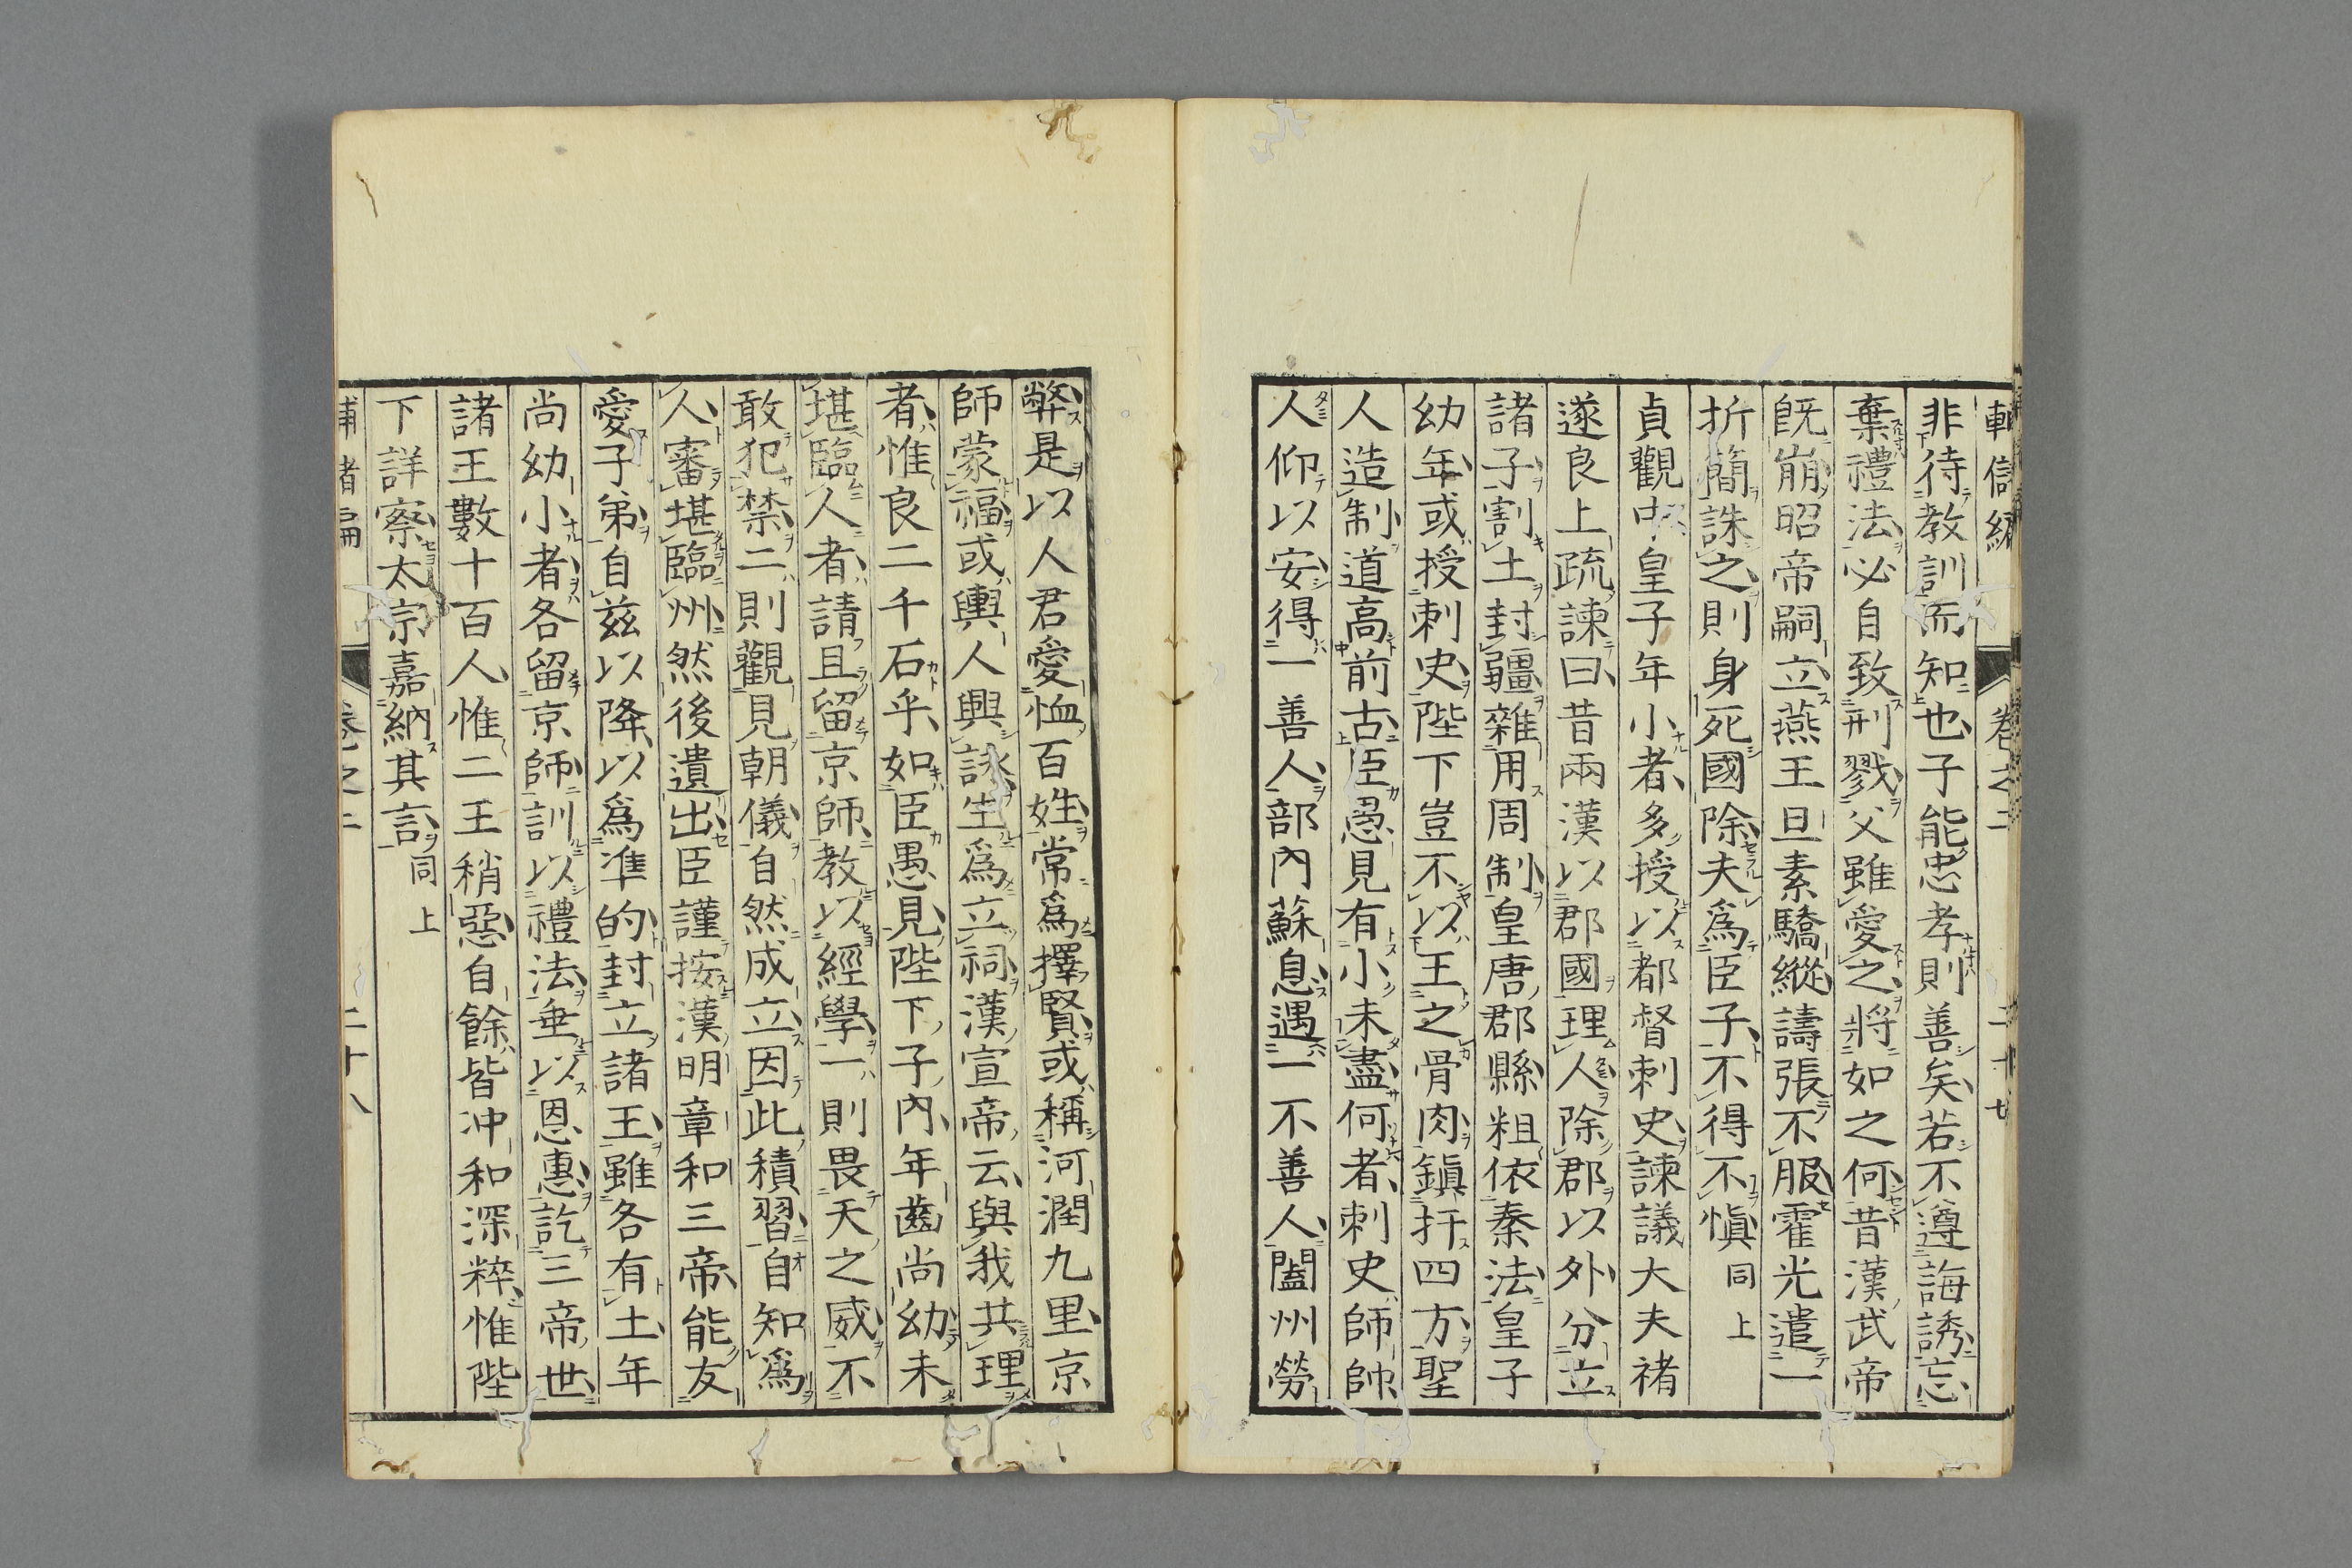 非待教訓而知也子能忠孝則善矣若不遵誨誘忘
棄禮法必自致刑戮父雖愛之將如之何昔漢武帝
既崩昭帝嗣立燕王旦素驕縱譸張不服霍光遣一
折簡誅之則身死國除夫爲臣子不得不愼同上
貞觀中皇子年小者多授以都督刺史諫議大夫褚
遂良上疏諫曰昔兩漢以郡國理人除郡以外分立
諸子割土封疆雜用周制皇唐郡縣粗依秦法皇子
幼年或授刺史陛下豈不以王之骨肉鎭扞四方聖
人造制道高前古臣愚見有小未盡何者刺史師帥
人仰以安得一善人部內蘇息遇一不善人闔州勞
弊是以人君愛恤百姓常爲擇賢或稱河潤九里京
師蒙福或輿人興詠生爲立祠漢宣帝云與我共理
者惟良二千石乎如臣愚見陛下子內年齒尚幼未
堪臨人者請且留京師教以經學一則畏天之威不
敢犯禁二則觀見朝儀自然成立因此積習自知爲
人審堪臨州然後遣出臣謹按漢明章和三帝能友
愛子弟自兹以降以爲準的封立諸王雖各有土年
尚幼小者各留京師訓以禮法垂以恩惠訖三帝世
諸王數十百人惟二王稍惡自餘皆冲和深粹惟陛
下詳察太宗嘉納其言同上
卷之二 二十八